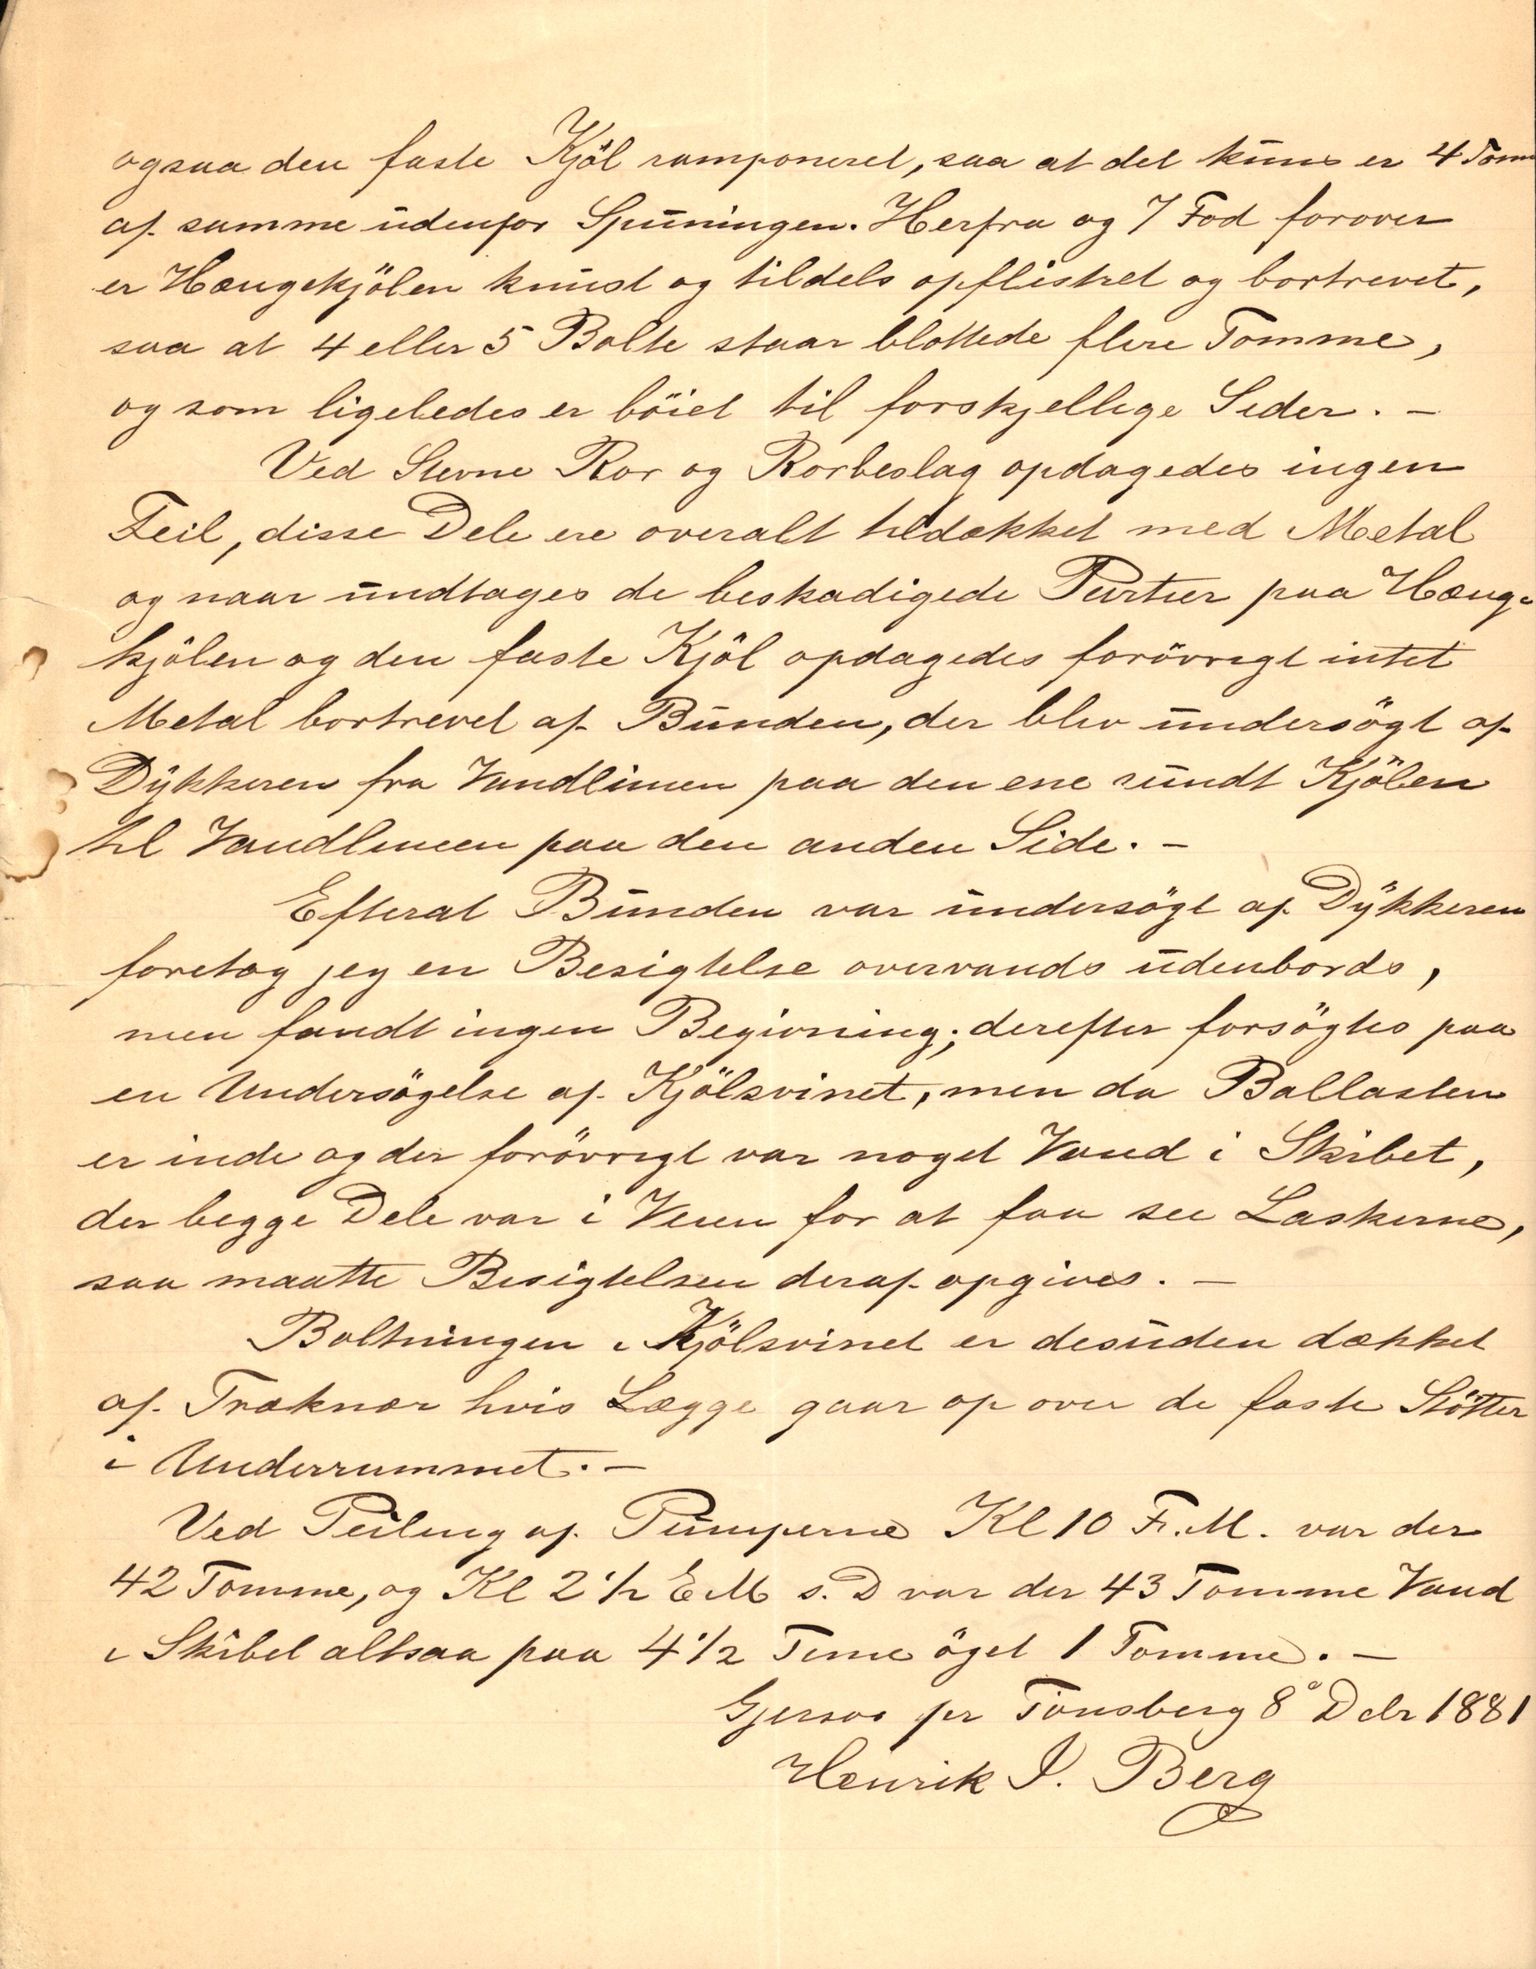 ogsaa den faste Kjöl ramponeret, saa at det kuns er 4 Tom
af samme udenfor Spuningen. Herfra og 7 Fod forover
er Hængekjölen knust og tildels opflistret og bortrevet,
saa at 4 eller 5 Bolte staar blottede flere Tomme,
og som ligeledes er böiet til forskjellige Sider. —
Ved Stevne Ror og Rorbeslag opdagedes ingen
Feil, disse Dele ere overalt tildækket med Metal
og naar undtages de beskadigede Partier paa Hæng-
kjölen og den faste Kjöl opdagedes forövrigt intet
Metal bortrevet af Bunden, der blev undersögt af
Dykkeren fra Vandlinien paa den ene rundt Kjölen
til Vandlinien paa den anden Side. —
Efterat Bunden var undersögt af Dykkeren
foretog jeg en Besigtelse overvands udenbords,
men fandt ingen Begivning; derefter forsögtes paa
en Undersögelse af Kjölsvinet, men da Ballasten
er inde og der forövrigt var noget Vand i Skibet,
der begge Dele var i Veien for at faa see Laskerne,
saa maatte Besigtelsen deraf opgives. —
Boltningen i Kjölsvinet er desuden dækket
af Træknær hvis Lægge gaar op over de faste Stötter
i Underrummet. —
Ved Peiling af Pumperne Kl 10 F.M. var der
42 Tomme, og Kl 2 1/2 EM s.D var der 43 Tomme Vand
i Skibet altsaa paa 4 1/2 Time öget 1 Tomme. —
Gjersøe pr Tönsberg 8 Debr 1881
Henrik J. Berg